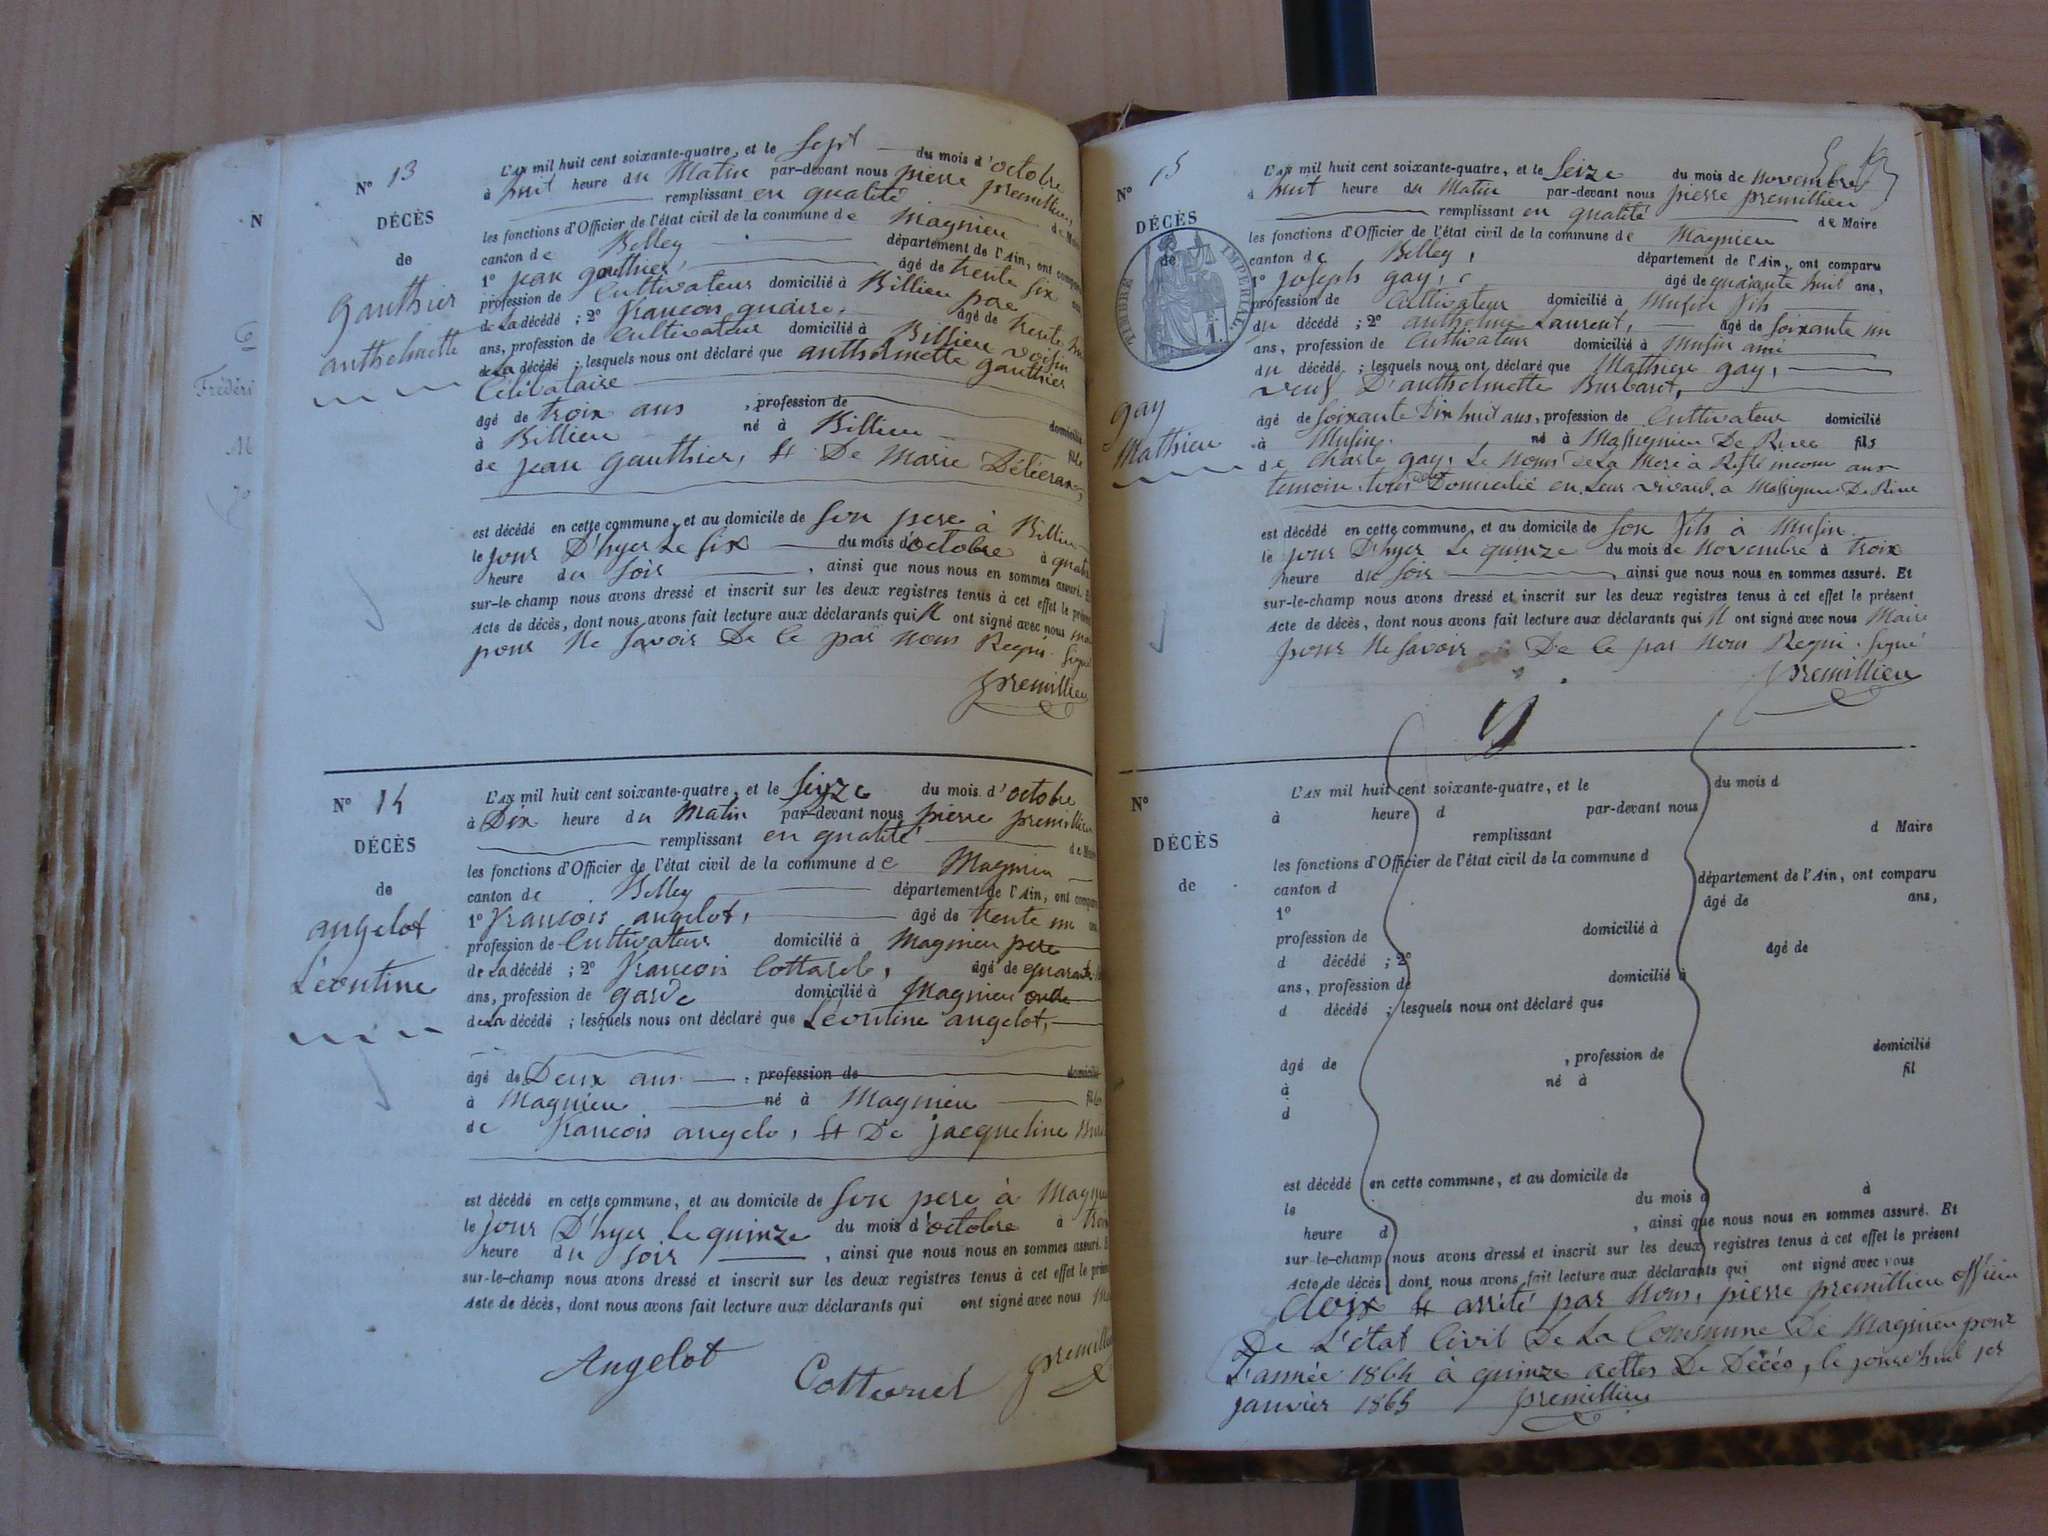 N° 13
DÉCÈS
de
Gauthier
anthelmette
L'AN mil huit cent soixante-quatre, et le Sept du mois d'octobre
à huit heure du Matin par-devant nous pierre premillieu
remplissant en qualité de Maire
les fonctions d'Officier de l'état civil de la commune de Magnieu
canton de Belley département de l'Ain, ont comparu
1° jean gauthier, âgé de trente six ans
profession de Cultivateur domicilié à Billieu pere
de La décédé ; 2° francois âgé de trente
ans, profession de Cultivateur domicilié à Billieu voisin
de La décédé ; lesquels nous ont déclaré que anthelmette gauthier
Célibataire
âgé de trois ans , profession de domicilié
à Billieu né à Billieu fille
de jean gauthier, et De Marie
est décédé en cette commune, et au domicile de Son pere à Billieu
le jour D'hyer Le Six du mois d'octobre à quatre
heure du Soir , ainsi que nous nous en sommes assuré. Et
sur-le-champ nous avons dressé et inscrit sur les deux registres tenus à cet effet le présent
Acte de décès, dont nous avons fait lecture aux déclarants qui N ont signé avec nous Maire
pour Ne Savoir De Ce par Nous Requi. Signé
premillieu
N° 14
DÉCÈS
de
angelot
Léontine
L'AN mil huit cent soixante-quatre, et le Seize du mois d'octobre
à Dix heure du Matin par-devant nous pierre premillieu
remplissant en qualité de Maire
les fonctions d'Officier de l'état civil de la commune de Magnieu
canton de Belley département de l'Ain, ont comparu
1° francois angelot, âgé de trente un ans
profession de Cultivateur domicilié à Magnieu pere
de La décédé ; 2° francois Cottarel, âgé de quarante
ans, profession de garde domicilié à Magnieu oncle
de La décédé ; lesquels nous ont déclaré que Léontine angelot,
âgé de Deux ans , profession de domicilié
à Magnieu né à Magnieu fille
de francois angelo, et De jacqueline
est décédé en cette commune, et au domicile de Son pere à Magnieu
le jour D'hyer Le quinze du mois d'octobre à trois
heure du Soir , ainsi que nous nous en sommes assuré. Et
sur-le-champ nous avons dressé et inscrit sur les deux registres tenus à cet effet le présent
Acte de décès, dont nous avons fait lecture aux déclarants qui ont signé avec nous Maire
Angelot Cotterel premillieu
N° 15
DÉCÈS
de
TIMBRE IMPÉRIAL
gay
Mathieu
L'AN mil huit cent soixante-quatre, et le Seize du mois de novembre
à huit heure du Matin par-devant nous pierre premillieu
remplissant en qualité de Maire
les fonctions d'Officier de l'état civil de la commune de Magnieu
canton de Belley, département de l'Ain, ont comparu
1° joseph gay, âgé de quarante huit ans,
profession de Cultivateur domicilié à Musin fils
du décédé ; 2° anthelme Laurent, âgé de soixante un
ans, profession de Cultivateur domicilié à Musin ami
du décédé ; lesquels nous ont déclaré que Mathieu gay,
veuf D'anthelmette Burbaret,
âgé de Soixante Dix huit ans, profession de Cultivateur domicilié
à Musin né à Massignieu De Rives fils
de Charle gay, Le Noms de La Mere à Resté inconu aux
temoin, tous Domicilié en Leur vivant à Massignieu De Rive
est décédé en cette commune, et au domicile de Son fils à Musin
le jour D'hyer Le quinze du mois de Novembre à trois
heure du Soir , ainsi que nous nous en sommes assuré. Et
sur-le-champ nous avons dressé et inscrit sur les deux registres tenus à cet effet le présent
Acte de décès, dont nous avons fait lecture aux déclarants qui N ont signé avec nous Maire
pour Ne Savoir De Ce par Nous Requi. Signé
premillieu
N°
DÉCÈS
de
L'AN mil huit cent soixante-quatre, et le du mois d
à heure d par-devant nous
remplissant d Maire
les fonctions d'Officier de l'état civil de la commune d
canton d département de l'Ain, ont comparu
1° âgé de ans,
profession de domicilié à
d décédé ; 2° âgé de
ans, profession de domicilié à
d décédé ; lesquels nous ont déclaré que
âgé de , profession de domicilié
à né à fil
d
est décédé en cette commune, et au domicile de
le du mois d à
heure d , ainsi que nous nous en sommes assuré. Et
sur-le-champ nous avons dressé et inscrit sur les deux registres tenus à cet effet le présent
Acte de décès, dont nous avons fait lecture aux déclarants qui ont signé avec nous
Cloix et arrêté par Nous, pierre premillieu officier
De L'état Civil De La Commune De Magnieu pour
L'année 1864 à quinze actes De Décès, le jourd'hui 1er
janvier 1865 premillieu